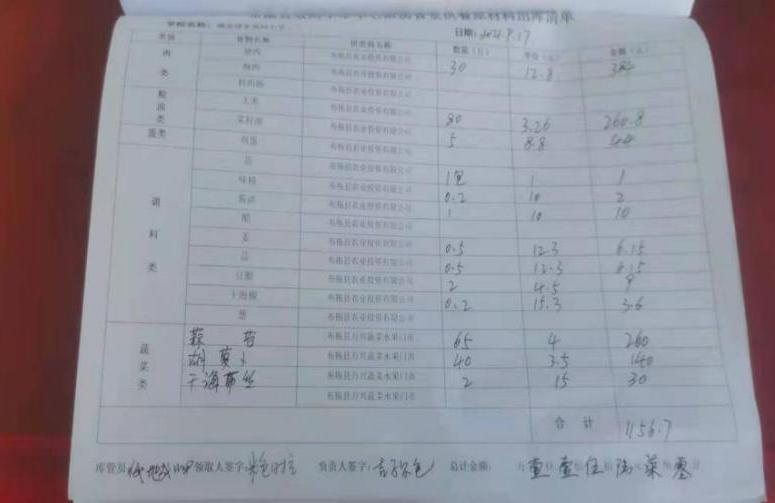 日期: 2021.9.17
类别 食物名称 供货商名称 数量(斤) 单价(元) 金额(元)
肉类
布拖县农业投资有限公司
布拖县农业投资有限公司 30 12.8 384
布拖县农业投资有限公司
粮油类
大米 布拖县农业投资有限公司
菜籽油 布拖县农业投资有限公司 80 3.26 260.8
蛋类 布拖县农业投资有限公司 5 8.8 44
调料类
布拖县农业投资有限公司
味精 布拖县农业投资有限公司 1包 1 1
酱油 布拖县农业投资有限公司 0.2 10 2
醋 布拖县农业投资有限公司 1 10 10
姜 布拖县农业投资有限公司 0.5 12.3 6.15
蒜 布拖县农业投资有限公司 0.5 12.3 6.15
豆瓣 布拖县农业投资有限公司 2 4.5 9
干海椒 布拖县农业投资有限公司 0.2 15.3 3.6
葱 布拖县农业投资有限公司
蔬菜类
蒜苔 布拖县万兴蔬菜水果门市 65 4 260
胡萝卜 布拖县万兴蔬菜水果门市 40 3.5 140
干海带丝 布拖县万兴蔬菜水果门市 2 15 30
布拖县万兴蔬菜水果门市
合计 1156.7
库管员 领取人签字: 负责人签字: 总计金额: 万 壹仟壹佰伍拾陆元柒角零分